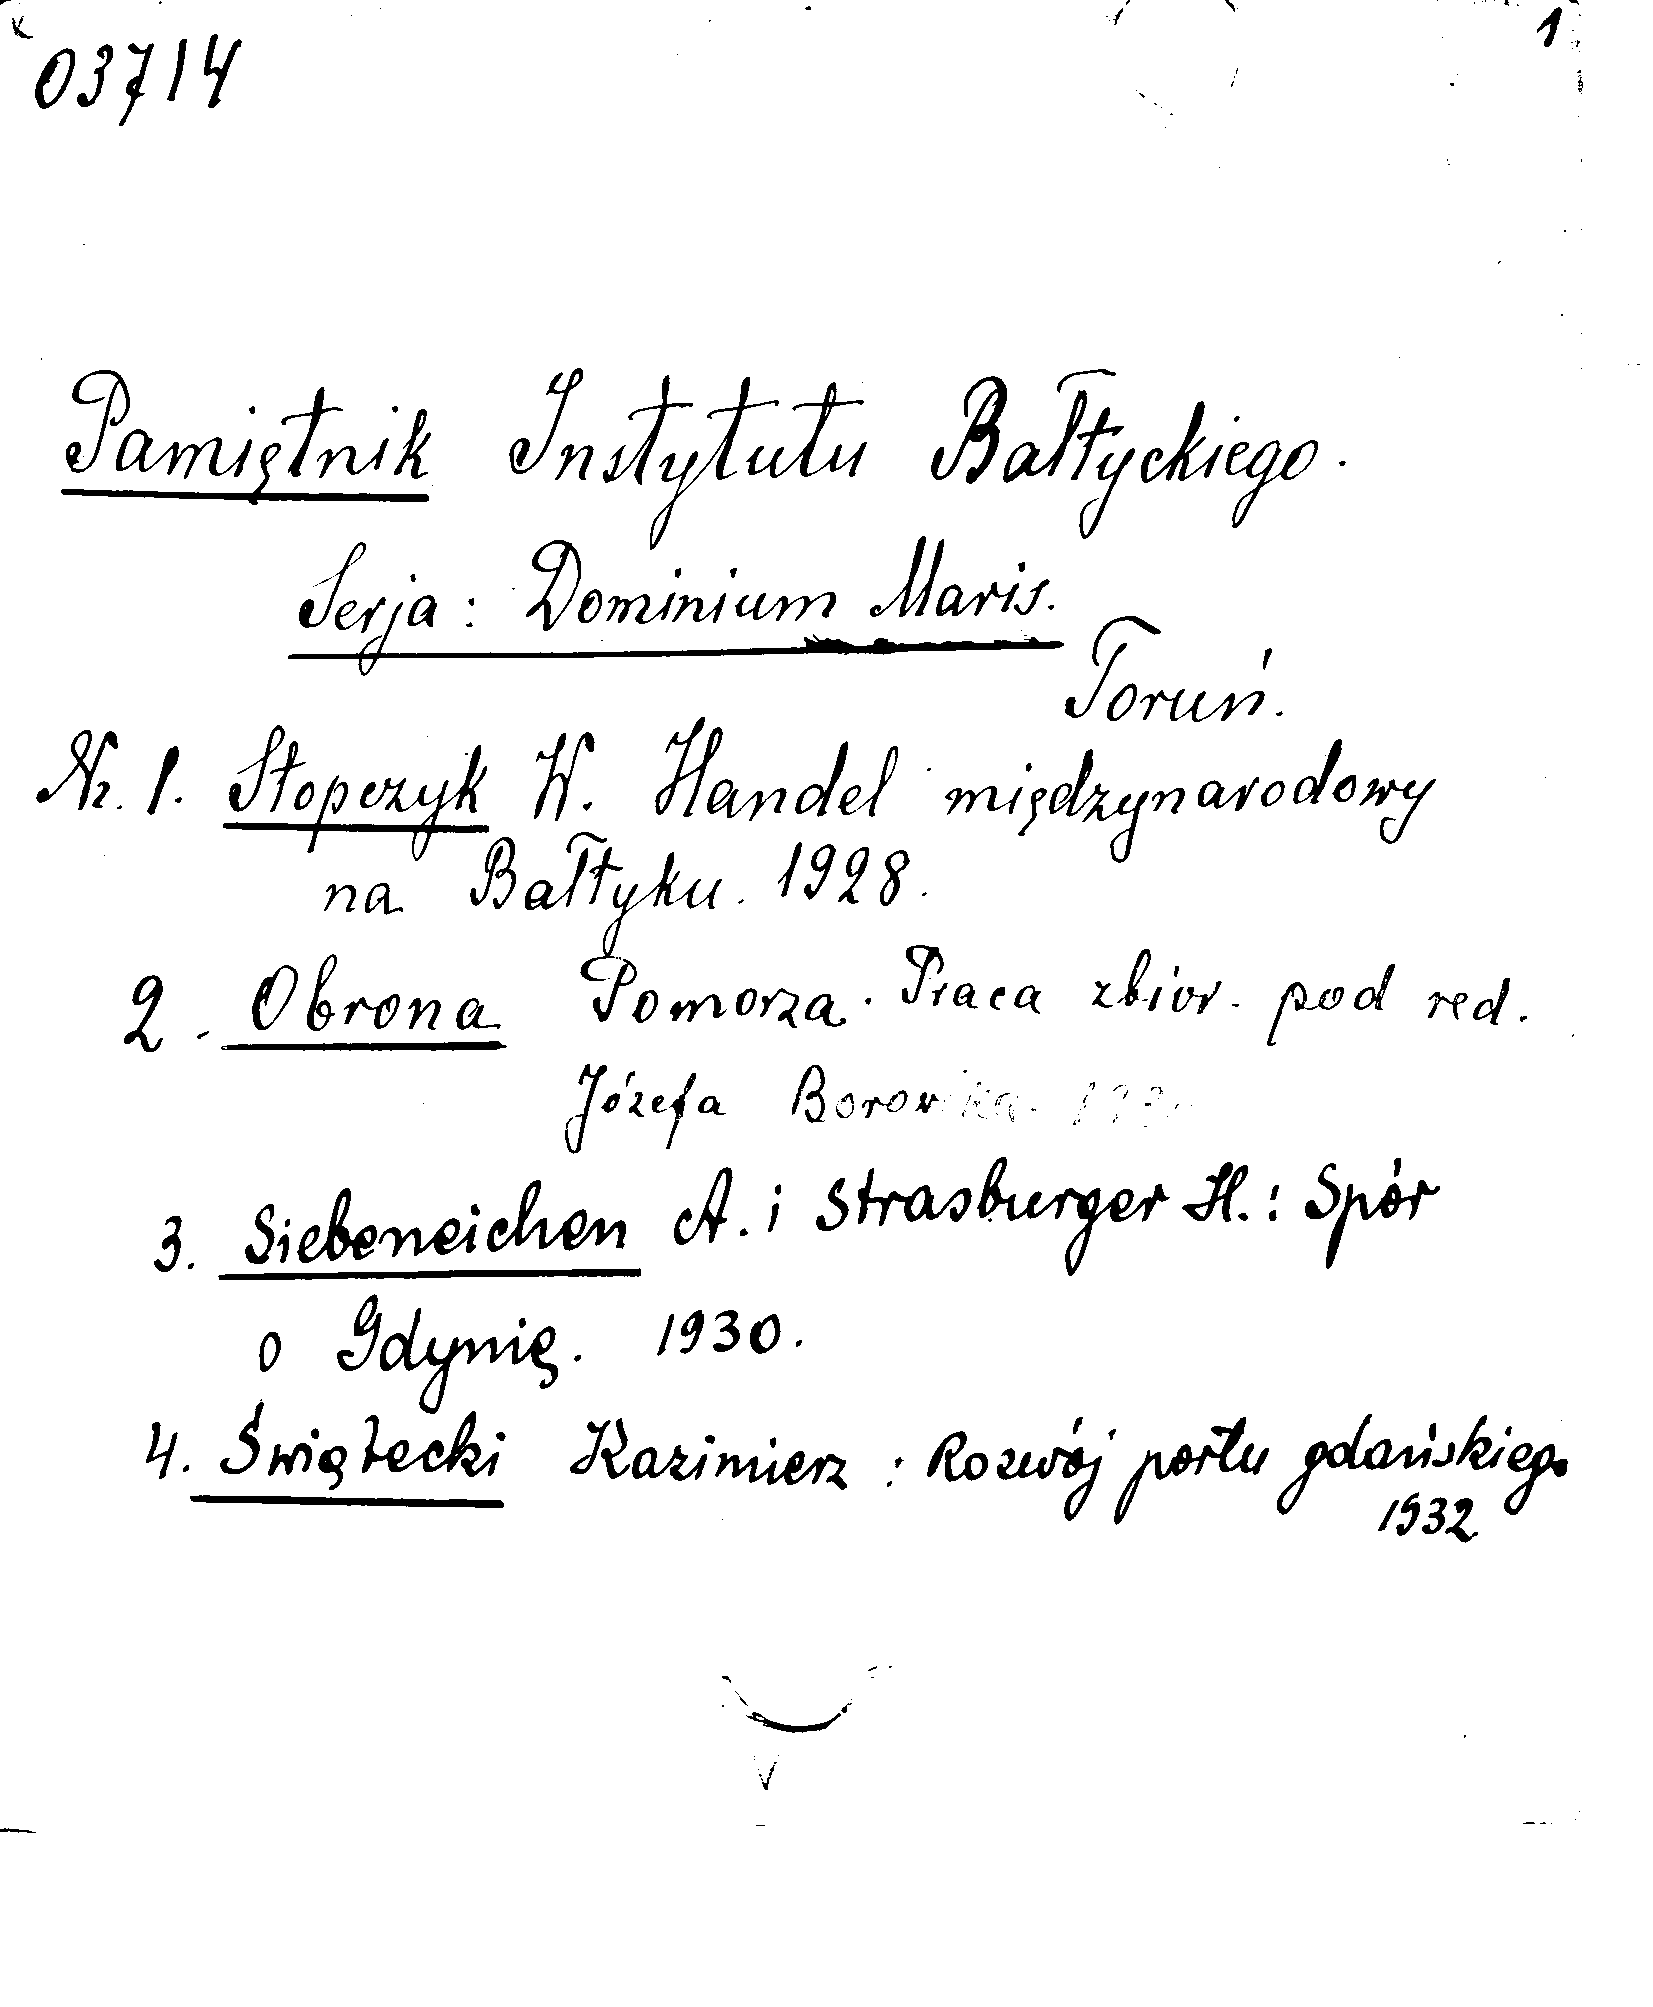 03714
1
Pamiętnik Instytutu Bałtyckiego.
Serja: Dominium Maris.
Toruń.
Nr. 1. Stopczyk W. Handel międzynarodowy
na Bałtyku. 1928.
2. Obrona Pomorza. Praca zbior. pod red.
Józefa Borowika.
3. Siebeneichen A. i Strasburger H.: Spór
o Gdynię. 1930.
4. Świątecki Kazimierz: Rozwój portu gdańskiego
1932